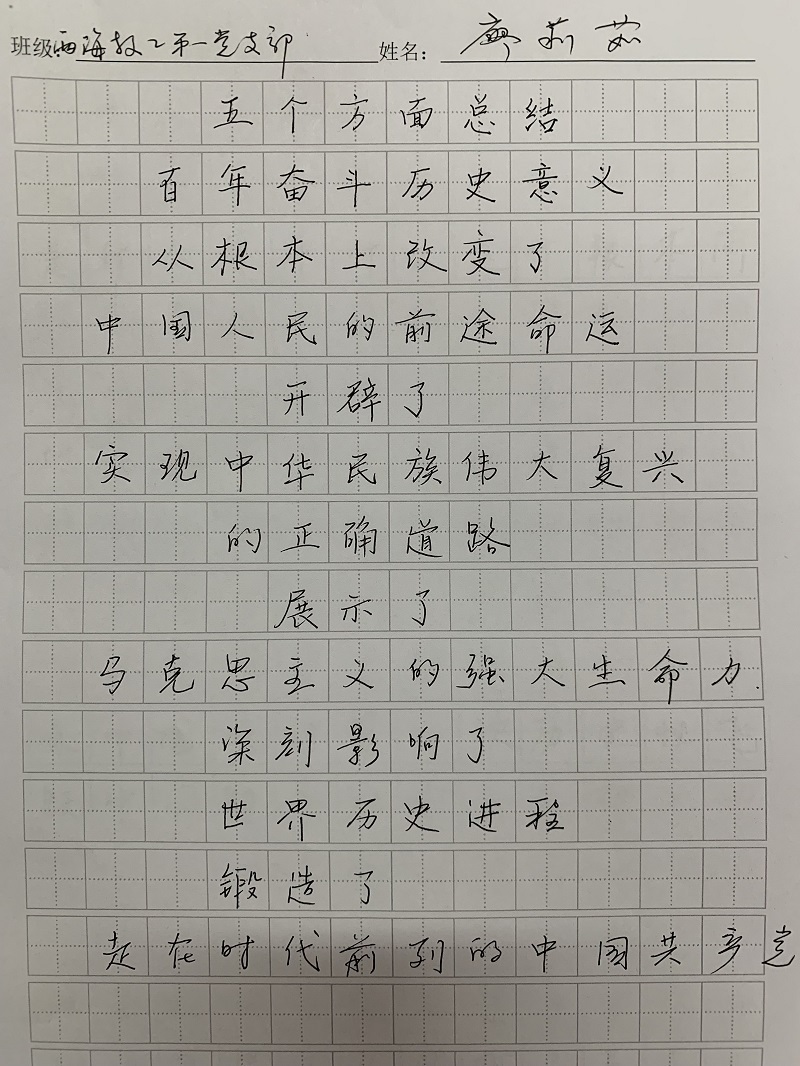 班级:西海教工第一党支部 姓名:廖莉茹
五个方面总结
百年奋斗历史意义
从根本上改变了
中国人民的前途命运
开辟了
实现中华民族伟大复兴
的正确道路
展示了
马克思主义的强大生命力.
深刻影响了
世界历史进程
锻造了
走在时代前列的中国共产党